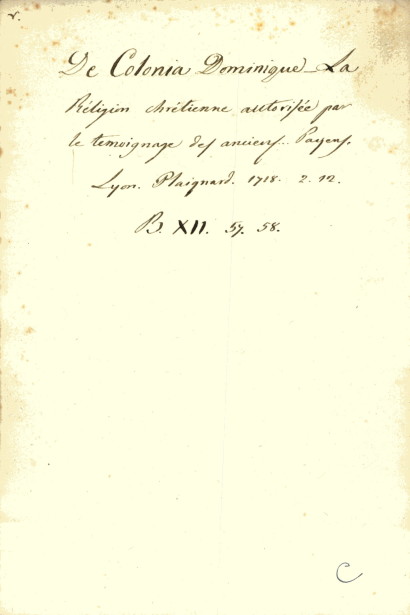 v.
De Colonia Dominique La
Réligion chrétienne autorisée par
le temoignage des anciens Payens.
Lyon. Plaignard. 1718. 2. 12.
B. XII. 57. 58.
C